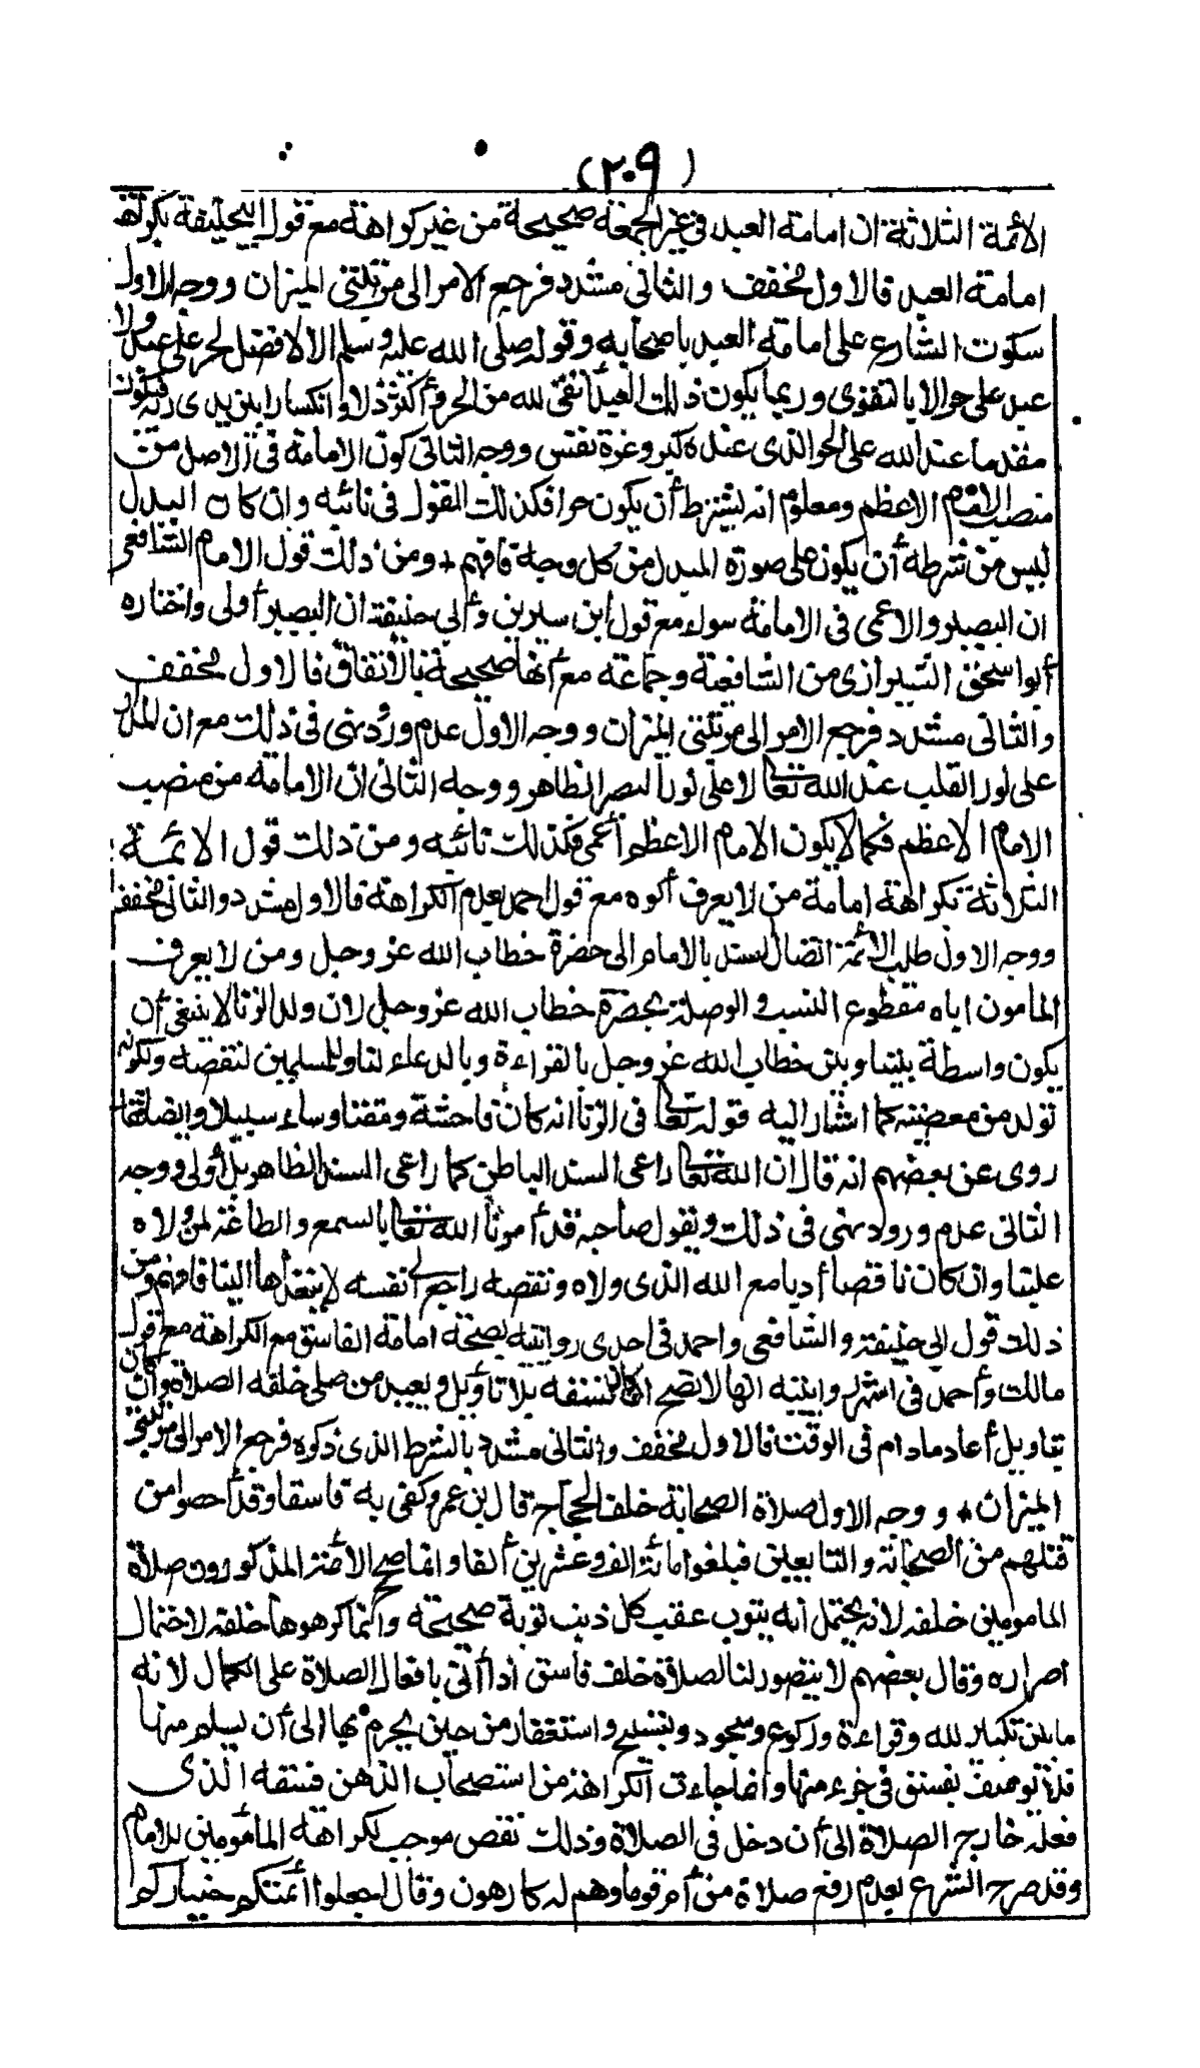 (٢٠٩)
الأئمة الثلاثة ان امامة العبد في غير الجمعة صحيحة من غير كراهة مع قول ابي حنيفة بكراهة
امامة العبد فالاول مخفف والثاني مشدد فرجع الامر الى مرتبتي الميزان ووجه الاول
سكوت الشارع على امامة العبد باصحابه وقوله صلى الله عليه وسلم الا لا فضل لحر على عبد ولا
عبد على حر الا بالتقوى وربما يكون ذلك العبد أتقى لله من الحر وأكثر ذلا وانكسارا بين يدي ربه فيكون
مقدما عند الله على الحر الذي عنده كبر وعزة نفس ووجه الثاني كون الامامة في الاصل من
منصب الامام الاعظم ومعلوم انه يشترط أن يكون حرا فكذلك القول في نائبه وان كان البدل
ليس من شرطه أن يكون على صورة المبدل من كل وجه فافهم * ومن ذلك قول الامام الشافعي
ان البصير والاعمى في الامامة سواء مع قول ابن سيرين وأبي حنيفة ان البصير أولى واختاره
أبو اسحق الشيرازي من الشافعية وجماعة مع أنها صحيحة بالاتفاق فالاول مخفف
والثاني مشدد فرجع الامر الى مرتبتي الميزان ووجه الاول عدم ورود نهي في ذلك مع ان المدار
على نور القلب عند الله تعالى لا على نور البصر الظاهر ووجه الثاني ان الامامة من منصب
الامام الاعظم فكما لا يكون الامام الاعظم أعمى فكذلك نائبه ومن ذلك قول الائمة
الثلاثة بكراهة امامة من لا يعرف أبوه مع قول احمد بعدم الكراهة فالاول مشدد والثاني مخفف
ووجه الاول طلب الائمة اتصال السند بالامام الى حضرة خطاب الله عز وجل ومن لا يعرف
المأمون اباه مقطوع النسب والوصلة بحضرة خطاب الله عز وجل لان ولد الزنا لا ينبغي أن
يكون واسطة بيننا وبين خطاب الله عز وجل بالقراءة وبالدعاء لنا وللمسلمين لنقصه وكونه
تولد من معصية كما اشار اليه قوله تعالى في الزنا انه كان فاحشة ومقتا وساء سبيلا وايضا فقد
روى عن بعضهم انه قال ان الله تعالى راعى السند الباطن كما راعى السند الظاهر بل أولى ووجه
الثاني عدم ورود نهي في ذلك ويقول صاحبه قد أمرنا الله تعالى بالسمع والطاعة لمن ولاه
علينا وان كان ناقصا أدبا مع الله الذي ولاه ونقصه راجع الى نفسه لا يتعداها الينا فافهم ومن
ذلك قول ابي حنيفة والشافعي واحمد في احدى روايتيه بصحة امامة الفاسق مع الكراهة مع قول
مالك وأحمد في اشهر روايتيه انها لا تصح ان كان فسقه بلا تأويل ويعيد من صلى خلفه الصلاة وان كان
بتأويل أعاد مادام في الوقت فالاول مخفف والثاني مشدد بالشرط الذي ذكروه فرجع الامر الى مرتبتي
الميزان * ووجه الاول صلاة الصحابة خلف الحجاج قال ابن عمر وكفى به فاسقا وقد أحصوا من
قتلهم من الصحابة والتابعين فبلغوا مائة الف وعشرين ألفا وانما صحح الأئمة المذكورون صلاة
المأمومين خلفه لانه يحتمل أنه يتوب عقب كل ذنب توبة صحيحة وانما كرهوها خلفه لاحتمال
اصراره وقال بعضهم لا يتصور لنا الصلاة خلف فاسق اذا أتى بافعال الصلاة على الكمال لانه
ما بين تكبير لله وقراءة وركوع وسجود وتسبيح واستغفار من حين يحرم بها الى أن يسلم منها
فلا توصف بفسق في جزء منها وانما جاءت الكراهة من استصحاب الذهن فسقه الذي
فعله خارج الصلاة الى أن دخل في الصلاة وذلك نقص موجب لكراهة المأمومين للامام
وقد صرح الشرع بعدم رفع صلاة من أم قوما وهم له كارهون وقال اجعلوا أئمتكم خياركم